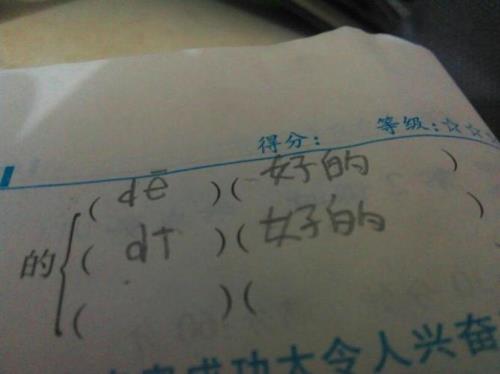 得分： 等级：☆☆
的{( dē )( 好的 )
( dī )( 好的 )
( )(
成功大令人兴奋